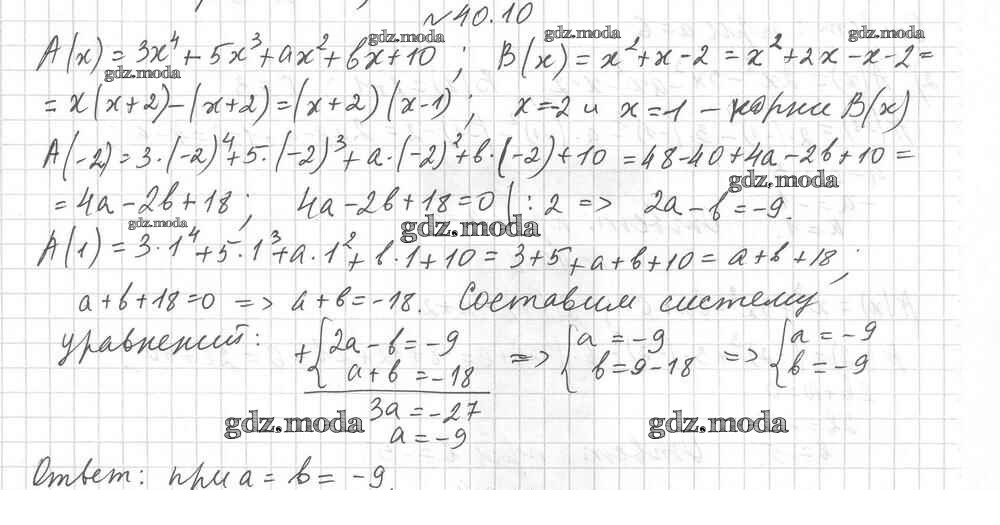 №40.10
A(x) = 3x⁴ + 5x³ + ax² + bx + 10 ; B(x) = x² + x - 2 = x² + 2x - x - 2 =
= x(x+2) - (x+2) = (x+2)(x-1) ; x = -2 и x = 1 - корни B(x)
A(-2) = 3·(-2)⁴ + 5·(-2)³ + a·(-2)² + b·(-2) + 10 = 48 - 40 + 4a - 2b + 10 =
= 4a - 2b + 18 ; 4a - 2b + 18 = 0 | : 2 => 2a - b = -9.
A(1) = 3·1⁴ + 5·1³ + a·1² + b·1 + 10 = 3 + 5 + a + b + 10 = a + b + 18 ;
a + b + 18 = 0 => a + b = -18. Составим систему
уравнений: + { 2a - b = -9 => { a = -9 => { a = -9
a + b = -18 b = 9 - 18 b = -9
3a = -27
a = -9
Ответ: при a = b = -9.
gdz.moda
gdz.moda
gdz.moda
gdz.moda
gdz.moda
gdz.moda
gdz.moda
gdz.moda
gdz.moda